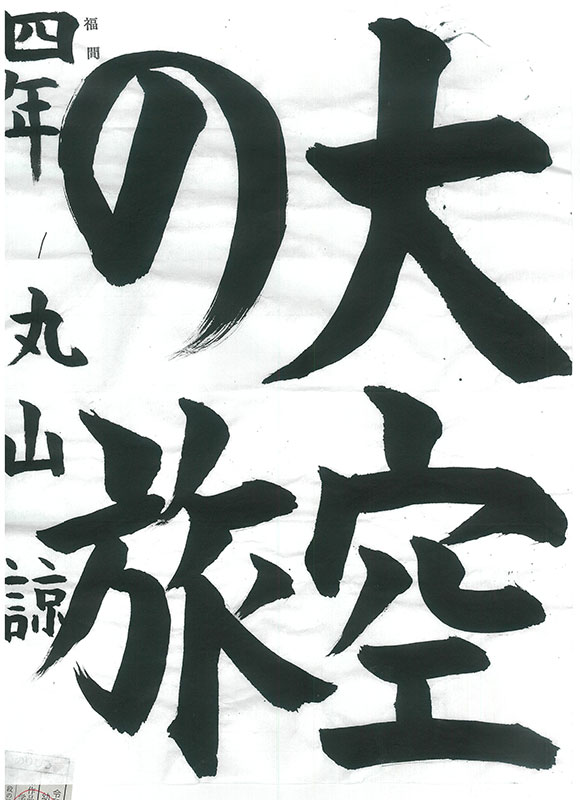 大空
の旅
福間
四年 丸山諒